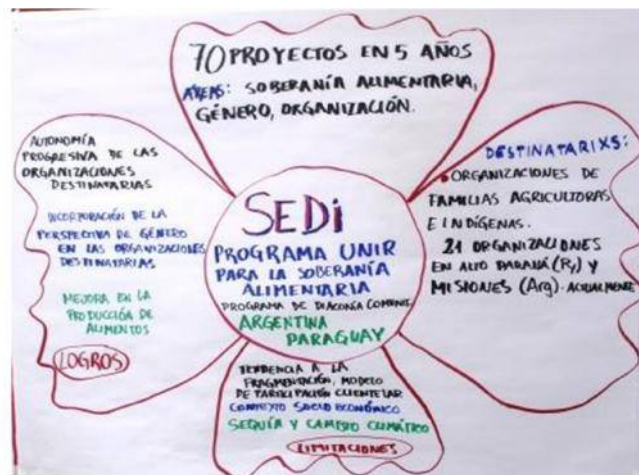 70 PROYECTOS EN 5 AÑOS
ÁREAS: SOBERANÍA ALIMENTARIA,
GÉNERO, ORGANIZACIÓN.
AUTONOMÍA
PROGRESIVA DE LAS
ORGANIZACIONES
DESTINATARIAS
INCORPORACIÓN DE LA
PERSPECTIVA DE GÉNERO
EN LAS ORGANIZACIONES
DESTINATARIAS
MEJORA EN LA
PRODUCCIÓN DE
ALIMENTOS
LOGROS
SEDi
PROGRAMA UNIR
PARA LA SOBERANÍA
ALIMENTARIA
PROGRAMA DE DIACONÍA
ARGENTINA
PARAGUAY
DESTINATARIXS:
ORGANIZACIONES DE
FAMILIAS AGRICULTORAS
E INDÍGENAS.
21 ORGANIZACIONES
EN ALTO PARANÁ (Py) Y
MISIONES (Arg). ACTUALMENTE
TENDENCIA A LA
FRAGMENTACIÓN, MODELO
DE PARTICIPACIÓN CLIENTELAR
CONTEXTO SOCIO ECONÓMICO
SEQUÍA Y CAMBIO CLIMÁTICO
LIMITACIONES